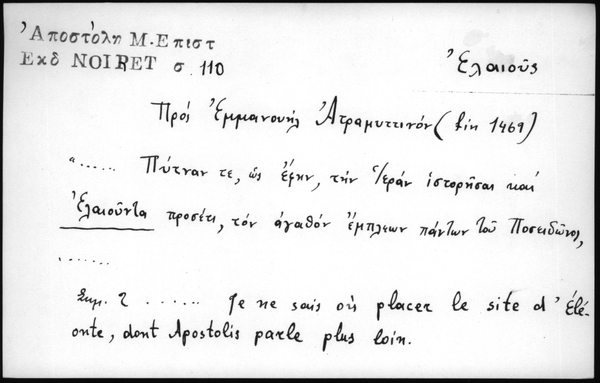 Ἀποστόλη Μ. Επιστ
Εκδ NOIRET σ. 110
Ἐλαιοῦς
Πρός Ἐμμανουήλ Ἀτραμυττινόν (fin 1469)
"...... Πύτναν τε, ὡς ἔφην, τήν Ἱεράν ἱστορῆσαι καί
Ἐλαιοῦντα προσέτι, τόν ἀγαθόν ἔμπλεων πάντων τοῦ Ποσειδῶνος,
.......
Σημ. 2 ...... Je ne sais où placer le site d'Élé-
onte, dont Apostolis parle plus loin.